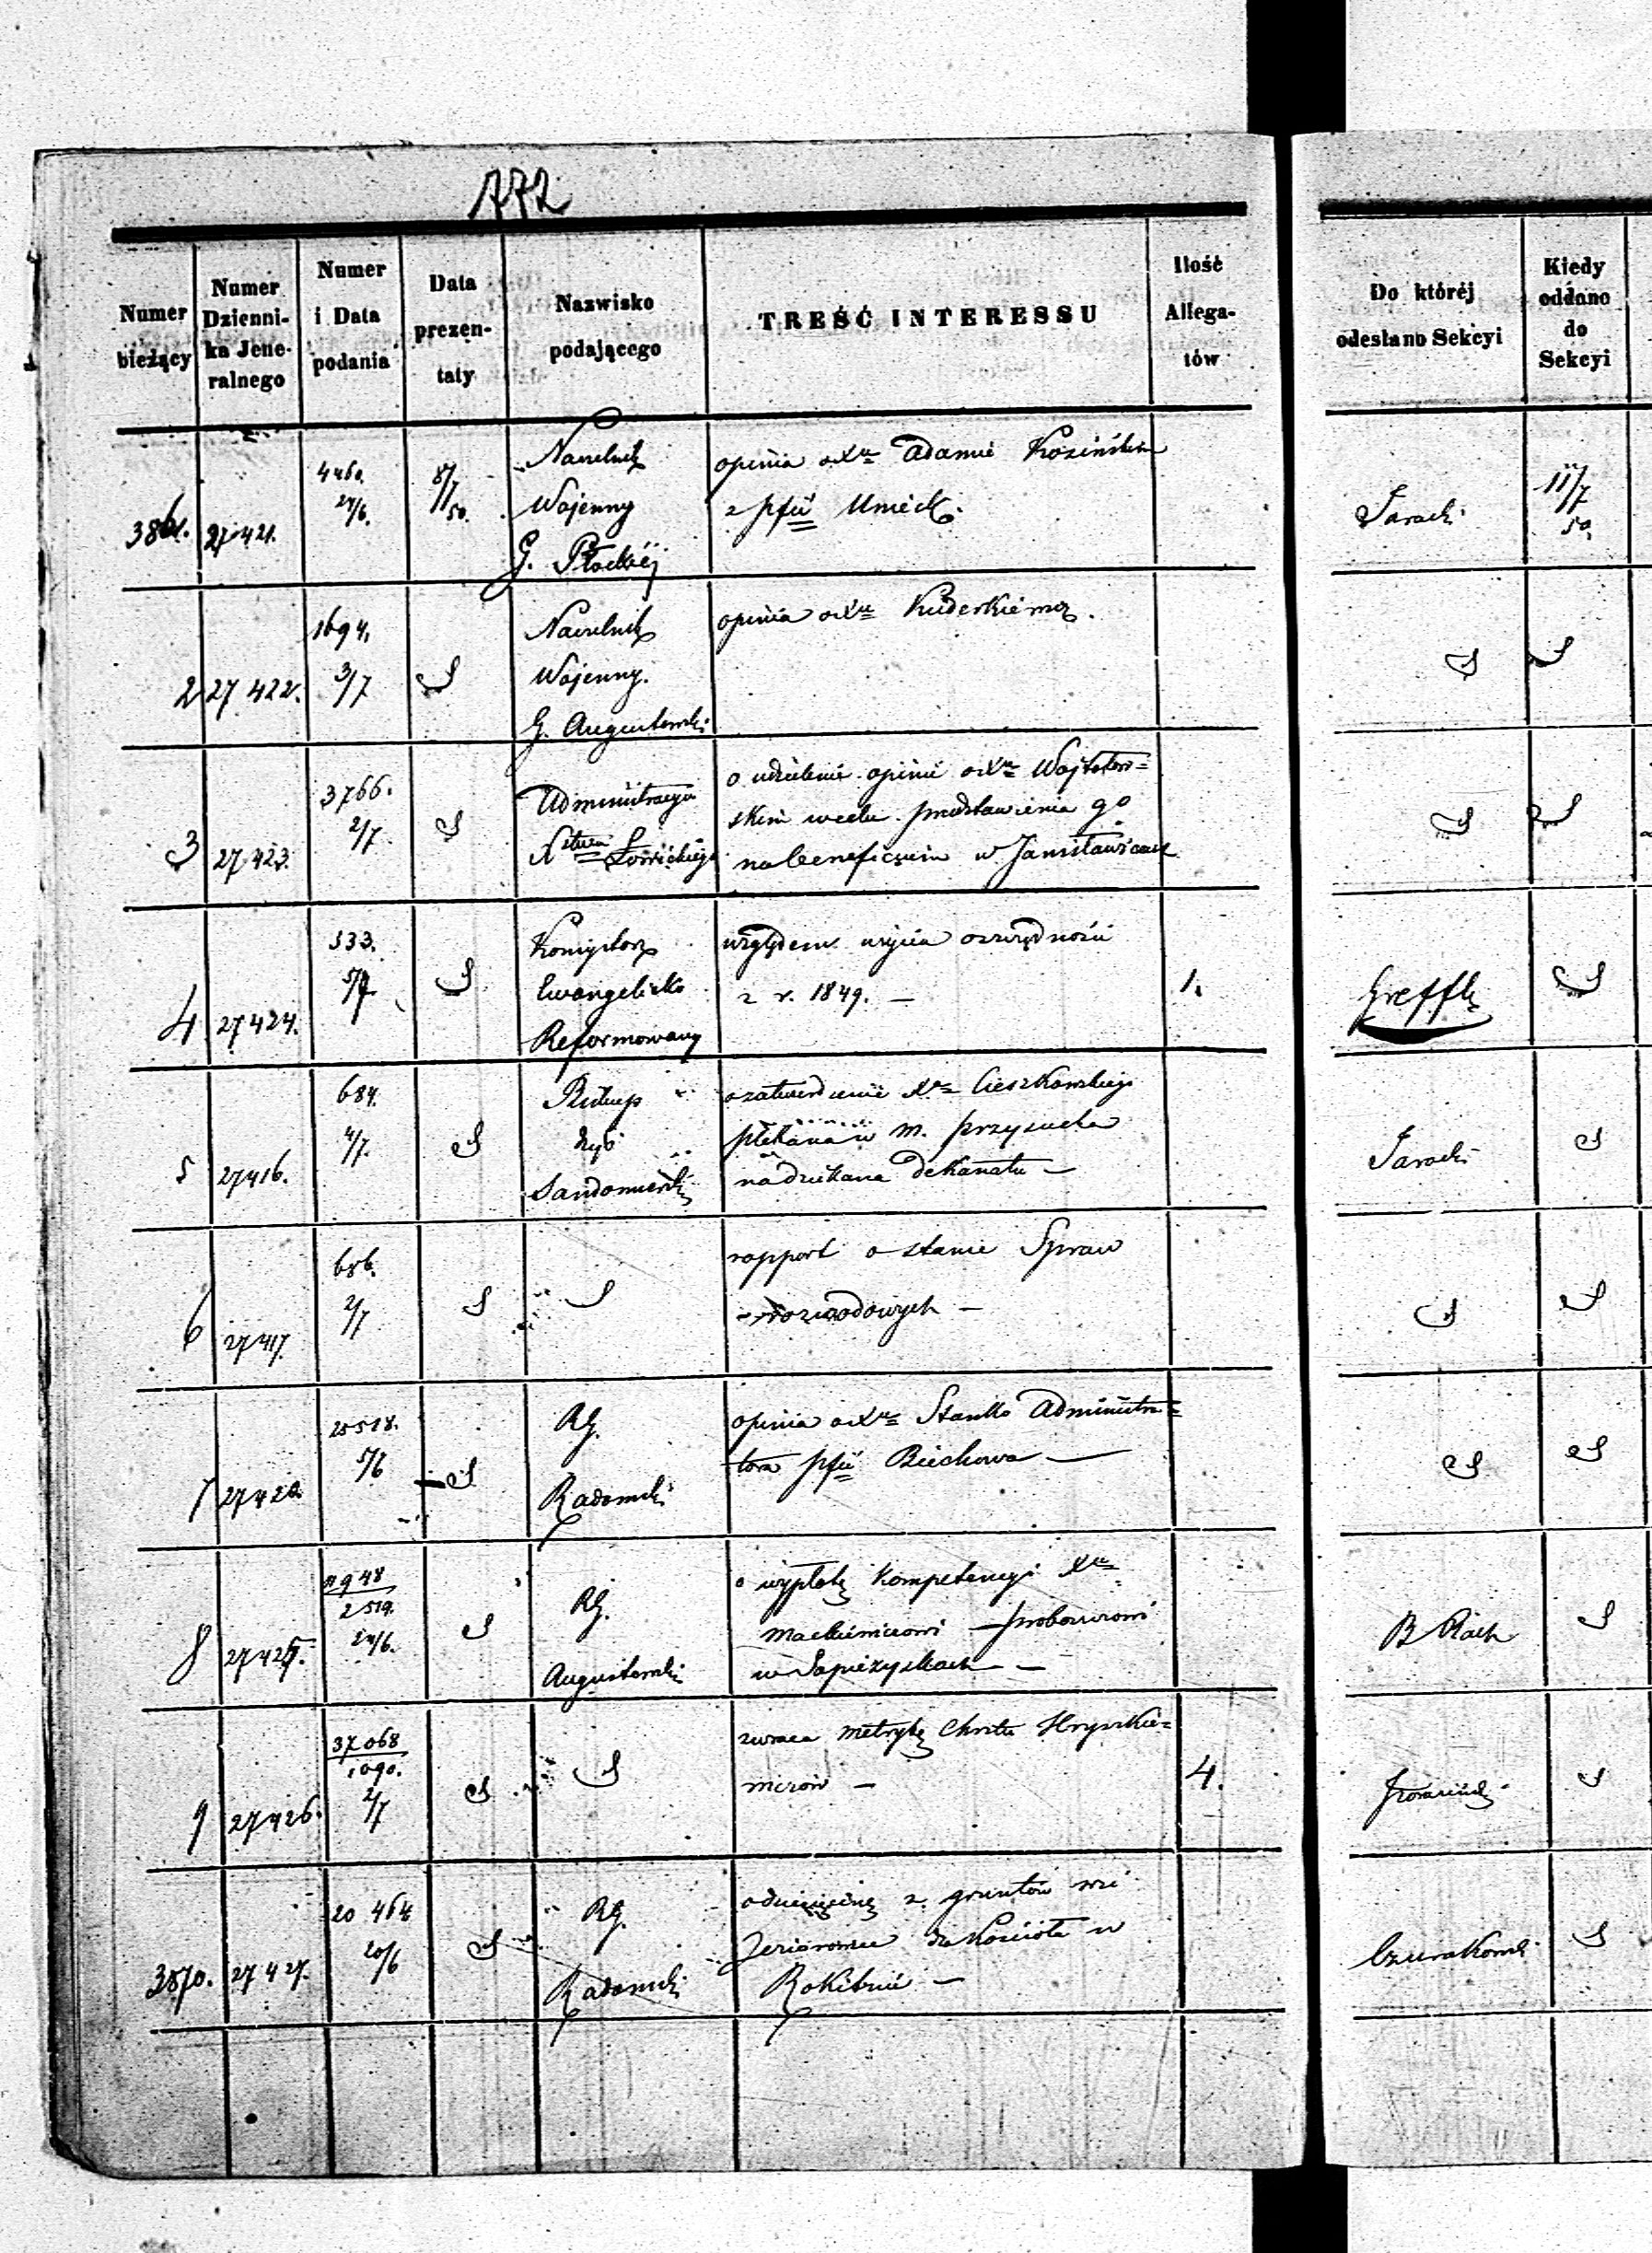 772
Numer bieżący
Numer Dzienni- ka Jene- ralnego
Numer i Data podania
Data prezen- taty
Nazwisko podającego
TREŚĆ INTERESSU
Ilość Allega- tów
Do któréj odesłano Sekcyi
Kiedy oddano do Sekcyi
3861. 27421. 4460. 27/6. 8/7 50.
Naczelnik
Wojenny
G. Płockiéj
opinia o Xu Adamie Kozińskim
z pfii Umieck.
Jarocki 11/7 50
2 27422. 1694. 3/7
Naczelnik
Wojenny.
G. Augustowski
opinia o Xu
3 27423. 3766. 2/7.
Administracya
Xstwa Łowickiego
o udzielenie opinii o Xu
skim wcelu przedstawienia go
na beneficium w Janisławicach
4 27424. 533. 5/7
Konsystorz
Ewangelicko
Reformowany
względem użycia oszczędności
z r. 1849. —
1.
5 27416. 684. 4/7.
Biskup
Dyo
Sandomierski
o zatwierdzenie Xa Cieszkowskiego
plebana w m. Przysucha
na dziekana Dekanatu —
Jarocki
6 27417. 686. 2/7
rapport o stanie Spraw
rozwodowych —
7 27420 25518. 5/6
RG.
Radomski
opinia o Xu Stanko Administra=
tora pfii Biechowa —
8 27425. 11948 2519. 24/6.
RG.
Augustowski
o wypłatę Kompetencyi Xu
Mackiewiczowi — proboszczowi
w Sapieżyszkach —
9 27426. 37068 1090. 2/7
zwraca metrykę Chrztu Hryszkie=
wiczów —
4.
3870. 27427. 20464 20/6
RG.
Radomski
o dziesięcinę z gruntów wsi
Jeziorowice do Kościoła w
Rokitnie —
Czurakowski